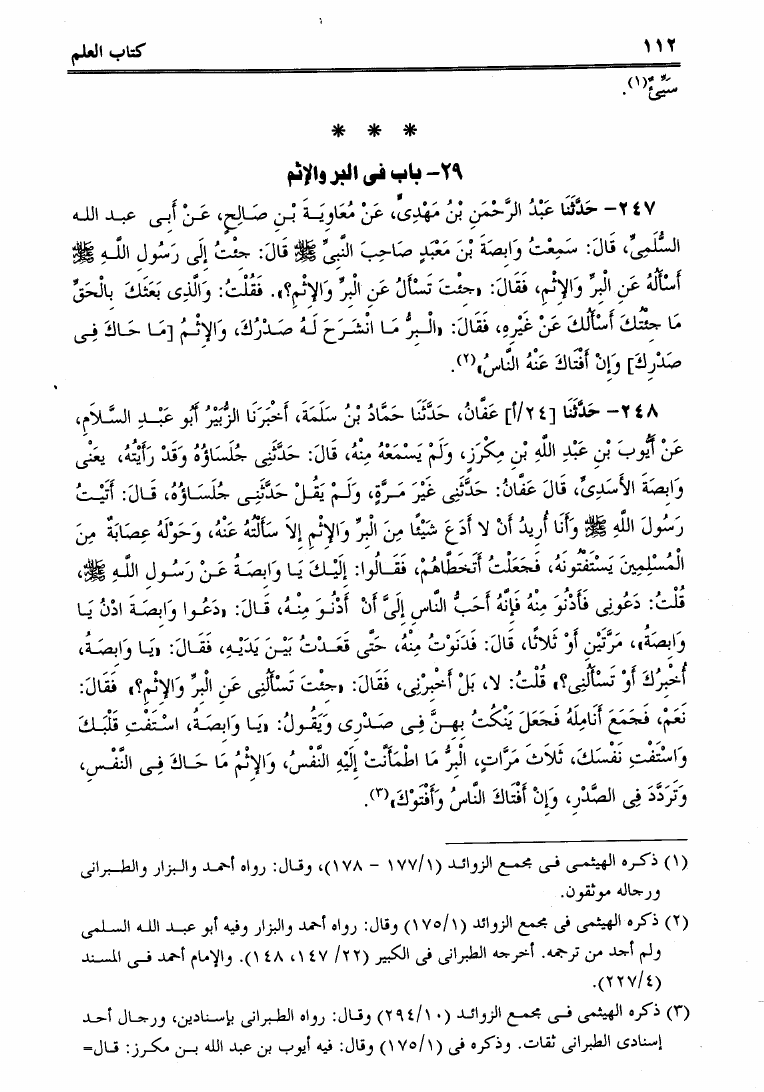 ١١٢ كتاب العلم
سَيِّئٌ(١).
* * *
٢٩- باب فى البر والإثم
٢٤٧- حَدَّثَنَا عَبْدُ الرَّحْمَنِ بْنُ مَهْدِىٍّ، عَنْ مُعَاوِيَةَ بْنِ صَالِحٍ، عَنْ أَبِى عبد الله
السُّلَمِىِّ، قَالَ: سَمِعْتُ وَابِصَةَ بْنَ مَعْبَدٍ صَاحِبَ النَّبِىِّ ﷺ قَالَ: جئْتُ إِلَى رَسُولِ اللَّهِ ﷺ
أَسْأَلُهُ عَنِ الْبِرِّ وَالإِثْمِ، فَقَالَ: «جئْتَ تَسْأَلُ عَنِ الْبِرِّ وَالإِثْمِ؟». فَقُلْتُ: وَالَّذِى بَعَثَكَ بِالْحَقِّ
مَا جِئْتُكَ أَسْأَلُكَ عَنْ غَيْرِهِ، فَقَالَ: «الْبِرُّ مَا انْشَرَحَ لَهُ صَدْرُكَ، وَالإِثْمُ [مَا حَاكَ فِى
صَدْرِكَ] وَإِنْ أَفْتَاكَ عَنْهُ النَّاسُ»(٢).
٢٤٨- حَدَّثَنَا [٢٤/أ] عَفَّانُ، حَدَّثَنَا حَمَّادُ بْنُ سَلَمَةَ، أَخْبَرَنَا الزُّبَيْرُ أَبُو عَبْدِ السَّلاَمِ،
عَنْ أَيُّوبَ بْنِ عَبْدِ اللَّهِ بْنِ مِكْرَزٍ، وَلَمْ يَسْمَعْهُ مِنْهُ، قَالَ: حَدَّثَنِى جُلَسَاؤُهُ وَقَدْ رَأَيْتُهُ، يعْنِى
وَابِصَةَ الأَسَدِىِّ، قَالَ عَفَّانُ: حَدَّثَنِى غَيْرَ مَرَّةٍ، وَلَمْ يَقُلْ حَدَّثَنِى جُلَسَاؤُهُ، قَالَ: أَتَيْتُ
رَسُولَ اللَّهِ ﷺ وَأَنَا أُرِيدُ أَنْ لا أَدَعَ شَيْئًا مِنَ الْبِرِّ وَالإِثْمِ إِلاَّ سَأَلْتُهُ عَنْهُ، وَحَوْلَهُ عِصَابَةٌ مِنَ
الْمُسْلِمِينَ يَسْتَفْتُونَهُ، فَجَعَلْتُ أَتَخَطَّاهُمْ، فَقَالُوا: إِلَيْكَ يَا وَابِصَةُ عَنْ رَسُولِ اللَّهِ ﷺ،
قُلْتُ: دَعُونِى فَأَدْنُوَ مِنْهُ فَإِنَّهُ أَحَبُّ النَّاسِ إِلَىَّ أَنْ أَدْنُوَ مِنْهُ، قَالَ: «دَعُوا وَابِصَةَ ادْنُ يَا
وَابِصَةُ»، مَرَّتَيْنِ أَوْ ثَلاَثًا، قَالَ: فَدَنَوْتُ مِنْهُ، حَتَّى قَعَدْتُ بَيْنَ يَدَيْهِ، فَقَالَ: «يَا وَابِصَةُ،
أُخْبِرُكَ أَوْ تَسْأَلُنِى؟» قُلْتُ: لا، بَلْ أَخْبِرْنِى، فَقَالَ: «جئْتَ تَسْأَلُنِى عَنِ الْبِرِّ وَالإِثْمِ؟» فَقَالَ:
نَعَمْ، فَجَمَعَ أَنَامِلَهُ فَجَعَلَ يَنْكُتُ بِهِنَّ فِى صَدْرِى وَيَقُولُ: «يَا وَابِصَةُ، اسْتَفْتِ قَلْبَكَ
وَاسْتَفْتِ نَفْسَكَ، ثَلاَثَ مَرَّاتٍ، الْبِرُّ مَا اطْمَأَنَّتْ إِلَيْهِ النَّفْسُ، وَالإِثْمُ مَا حَاكَ فِى النَّفْسِ،
وَتَرَدَّدَ فِى الصَّدْرِ، وَإِنْ أَفْتَاكَ النَّاسُ وَأَفْتَوْكَ»(٣).
(١) ذكره الهيثمى فى مجمع الزوائد (١/١٧٧ - ١٧٨)، وقال: رواه أحمد والبزار والطبرانى
ورجاله موثقون.
(٢) ذكره الهيثمى فى مجمع الزوائد (١/١٧٥) وقال: رواه أحمد والبزار وفيه أبو عبد الله السلمى
ولم أجد من ترجمه. أخرجه الطبرانى فى الكبير (٢٢/ ١٤٧، ١٤٨). والإمام أحمد فى المسند
(٤/٢٢٧).
(٣) ذكره الهيثمى فى مجمع الزوائد (١٠/٢٩٤) وقال: رواه الطبرانى بإسنادين، ورجال أحد
إسنادى الطبرانى ثقات. وذكره فى (١/١٧٥) وقال: فيه أيوب بن عبد الله بن مكرز: قال=